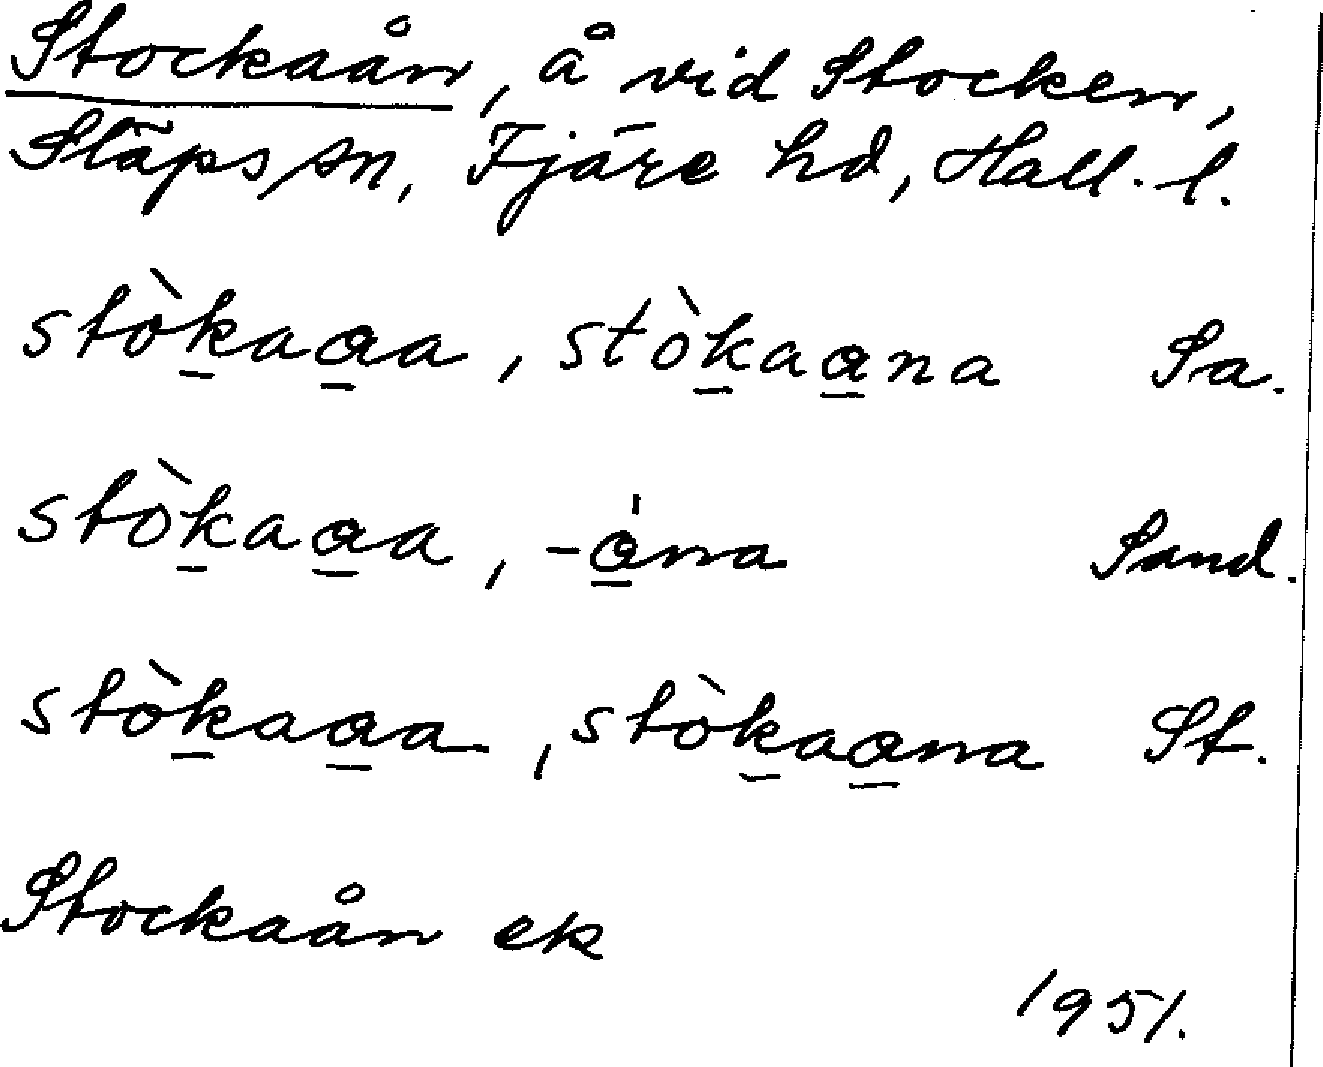 Stockaån, å vid Stocken,
Släps sn, Fjäre hd, Hall. l.
stòkaaa, stòkaana Sa.
stòkaaa, -ána Sand.
stòkaaa, stòkaana St.
Stockaån ek
1951.